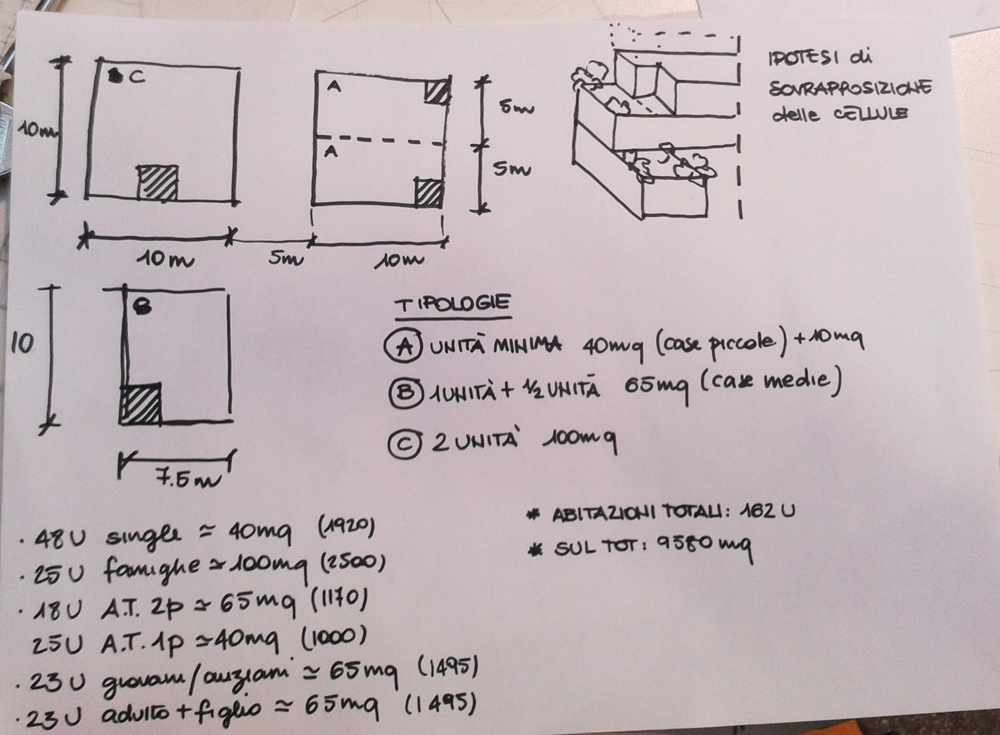 10m
C
10m
5m
A
A
5m
5m
10m
IPOTESI di
SOVRAPPOSIZIONE
delle CELLULE
10
B
7.5m
TIPOLOGIE
A UNITÀ MINIMA 40mq (case piccole) + 10mq
B 1UNITÀ + 1/2 UNITÀ 65mq (case medie)
C 2 UNITÀ 100mq
· 48U single ≃ 40mq (1920)
· 25U famiglie ≃ 100mq (2500)
· 18U A.T. 2p ≃ 65mq (1170)
25U A.T. 1p ≃ 40mq (1000)
· 23U giovani/anziani ≃ 65mq (1495)
· 23U adulto + figlio ≃ 65mq (1495)
* ABITAZIONI TOTALI: 162 U
* SUL TOT: 9580 mq